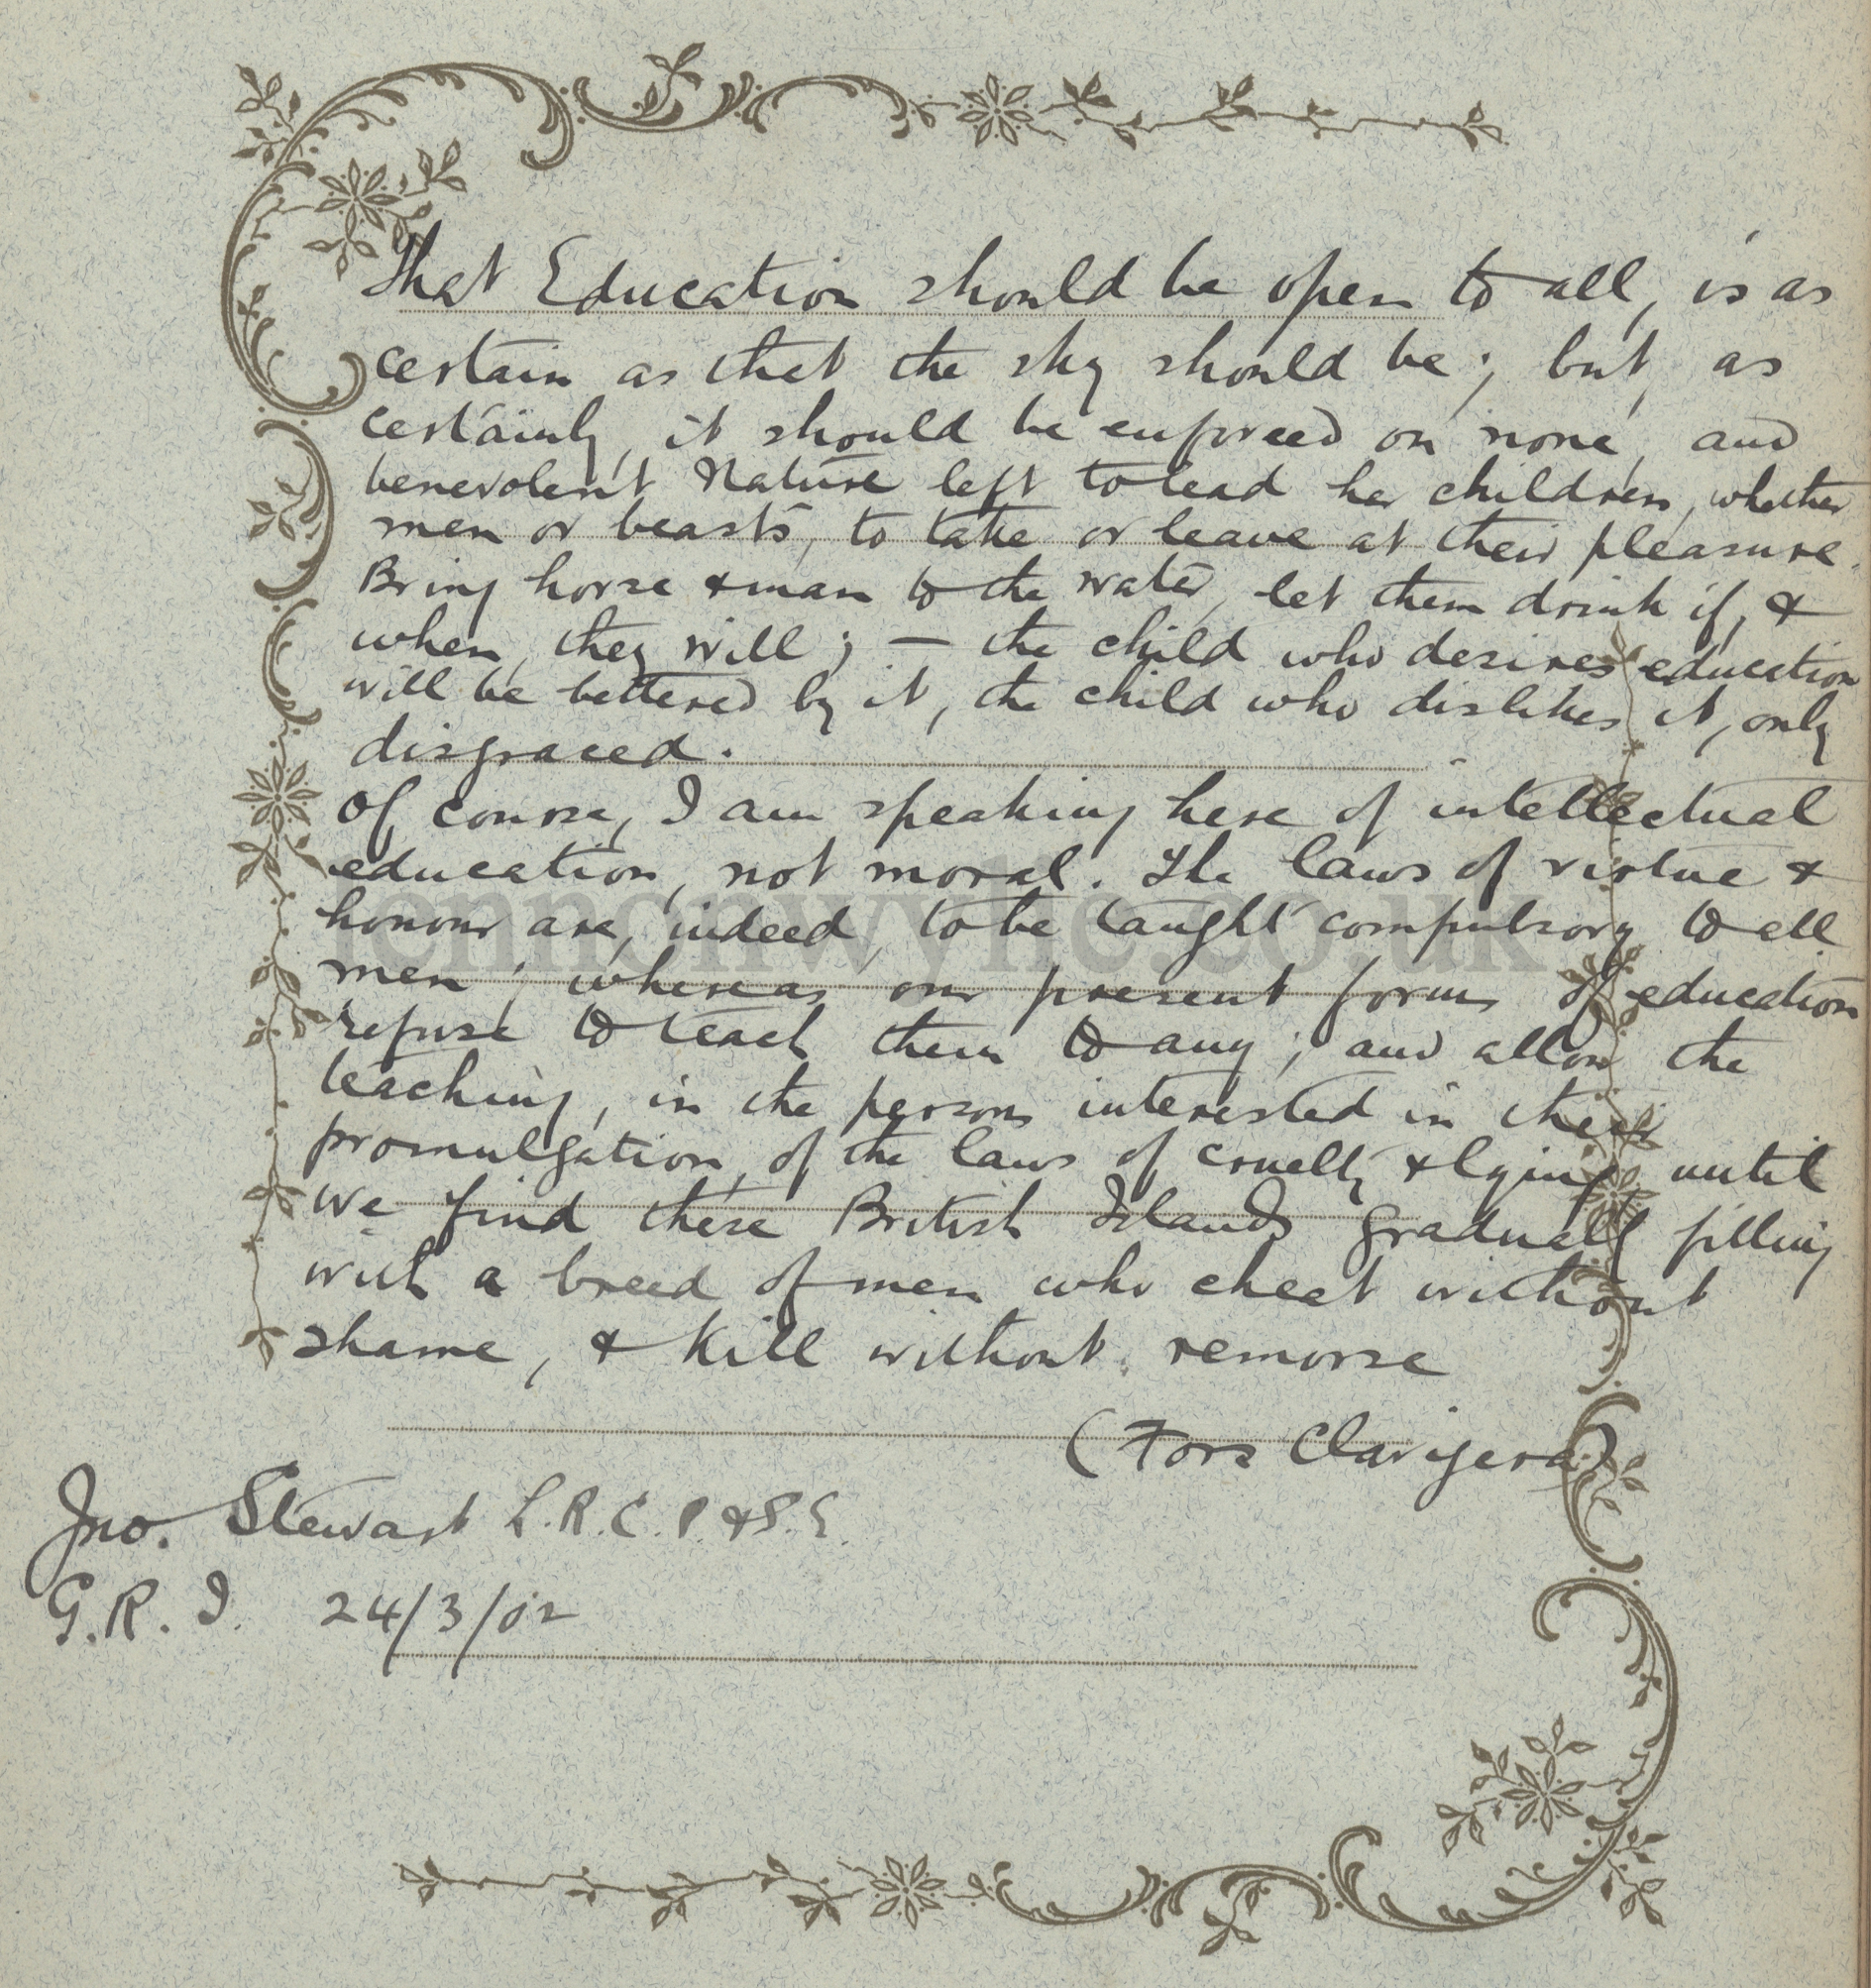 That Education should be open to all, is as
certain as that the sky should be; but, as
certainly, it should be enforced on none, and
benevolent Nature left to lead her children, whether
men or beasts, to take or leave at their pleasure.
Bring horse & man to the water, let them drink if, &
when, they will; — the child who desires education
will be bettered by it, the child who dislikes it, only
disgraced.
Of course, I am speaking here of intellectual
education, not moral. The laws of virtue &
honour are, indeed, to be taught compulsory to all
men; whereas our present forms of education
refuse to teach them to any; and allow the
teaching, in the persons interested in their
promulgation, of the laws of cruelty & lying until
we find these British Islands gradually filling
with a breed of men who cheat without
shame, & kill without remorse
(Fors Clavigera)
Jno. Stewart L.R.C.P. & S.E.
G.R.I. 24/3/02